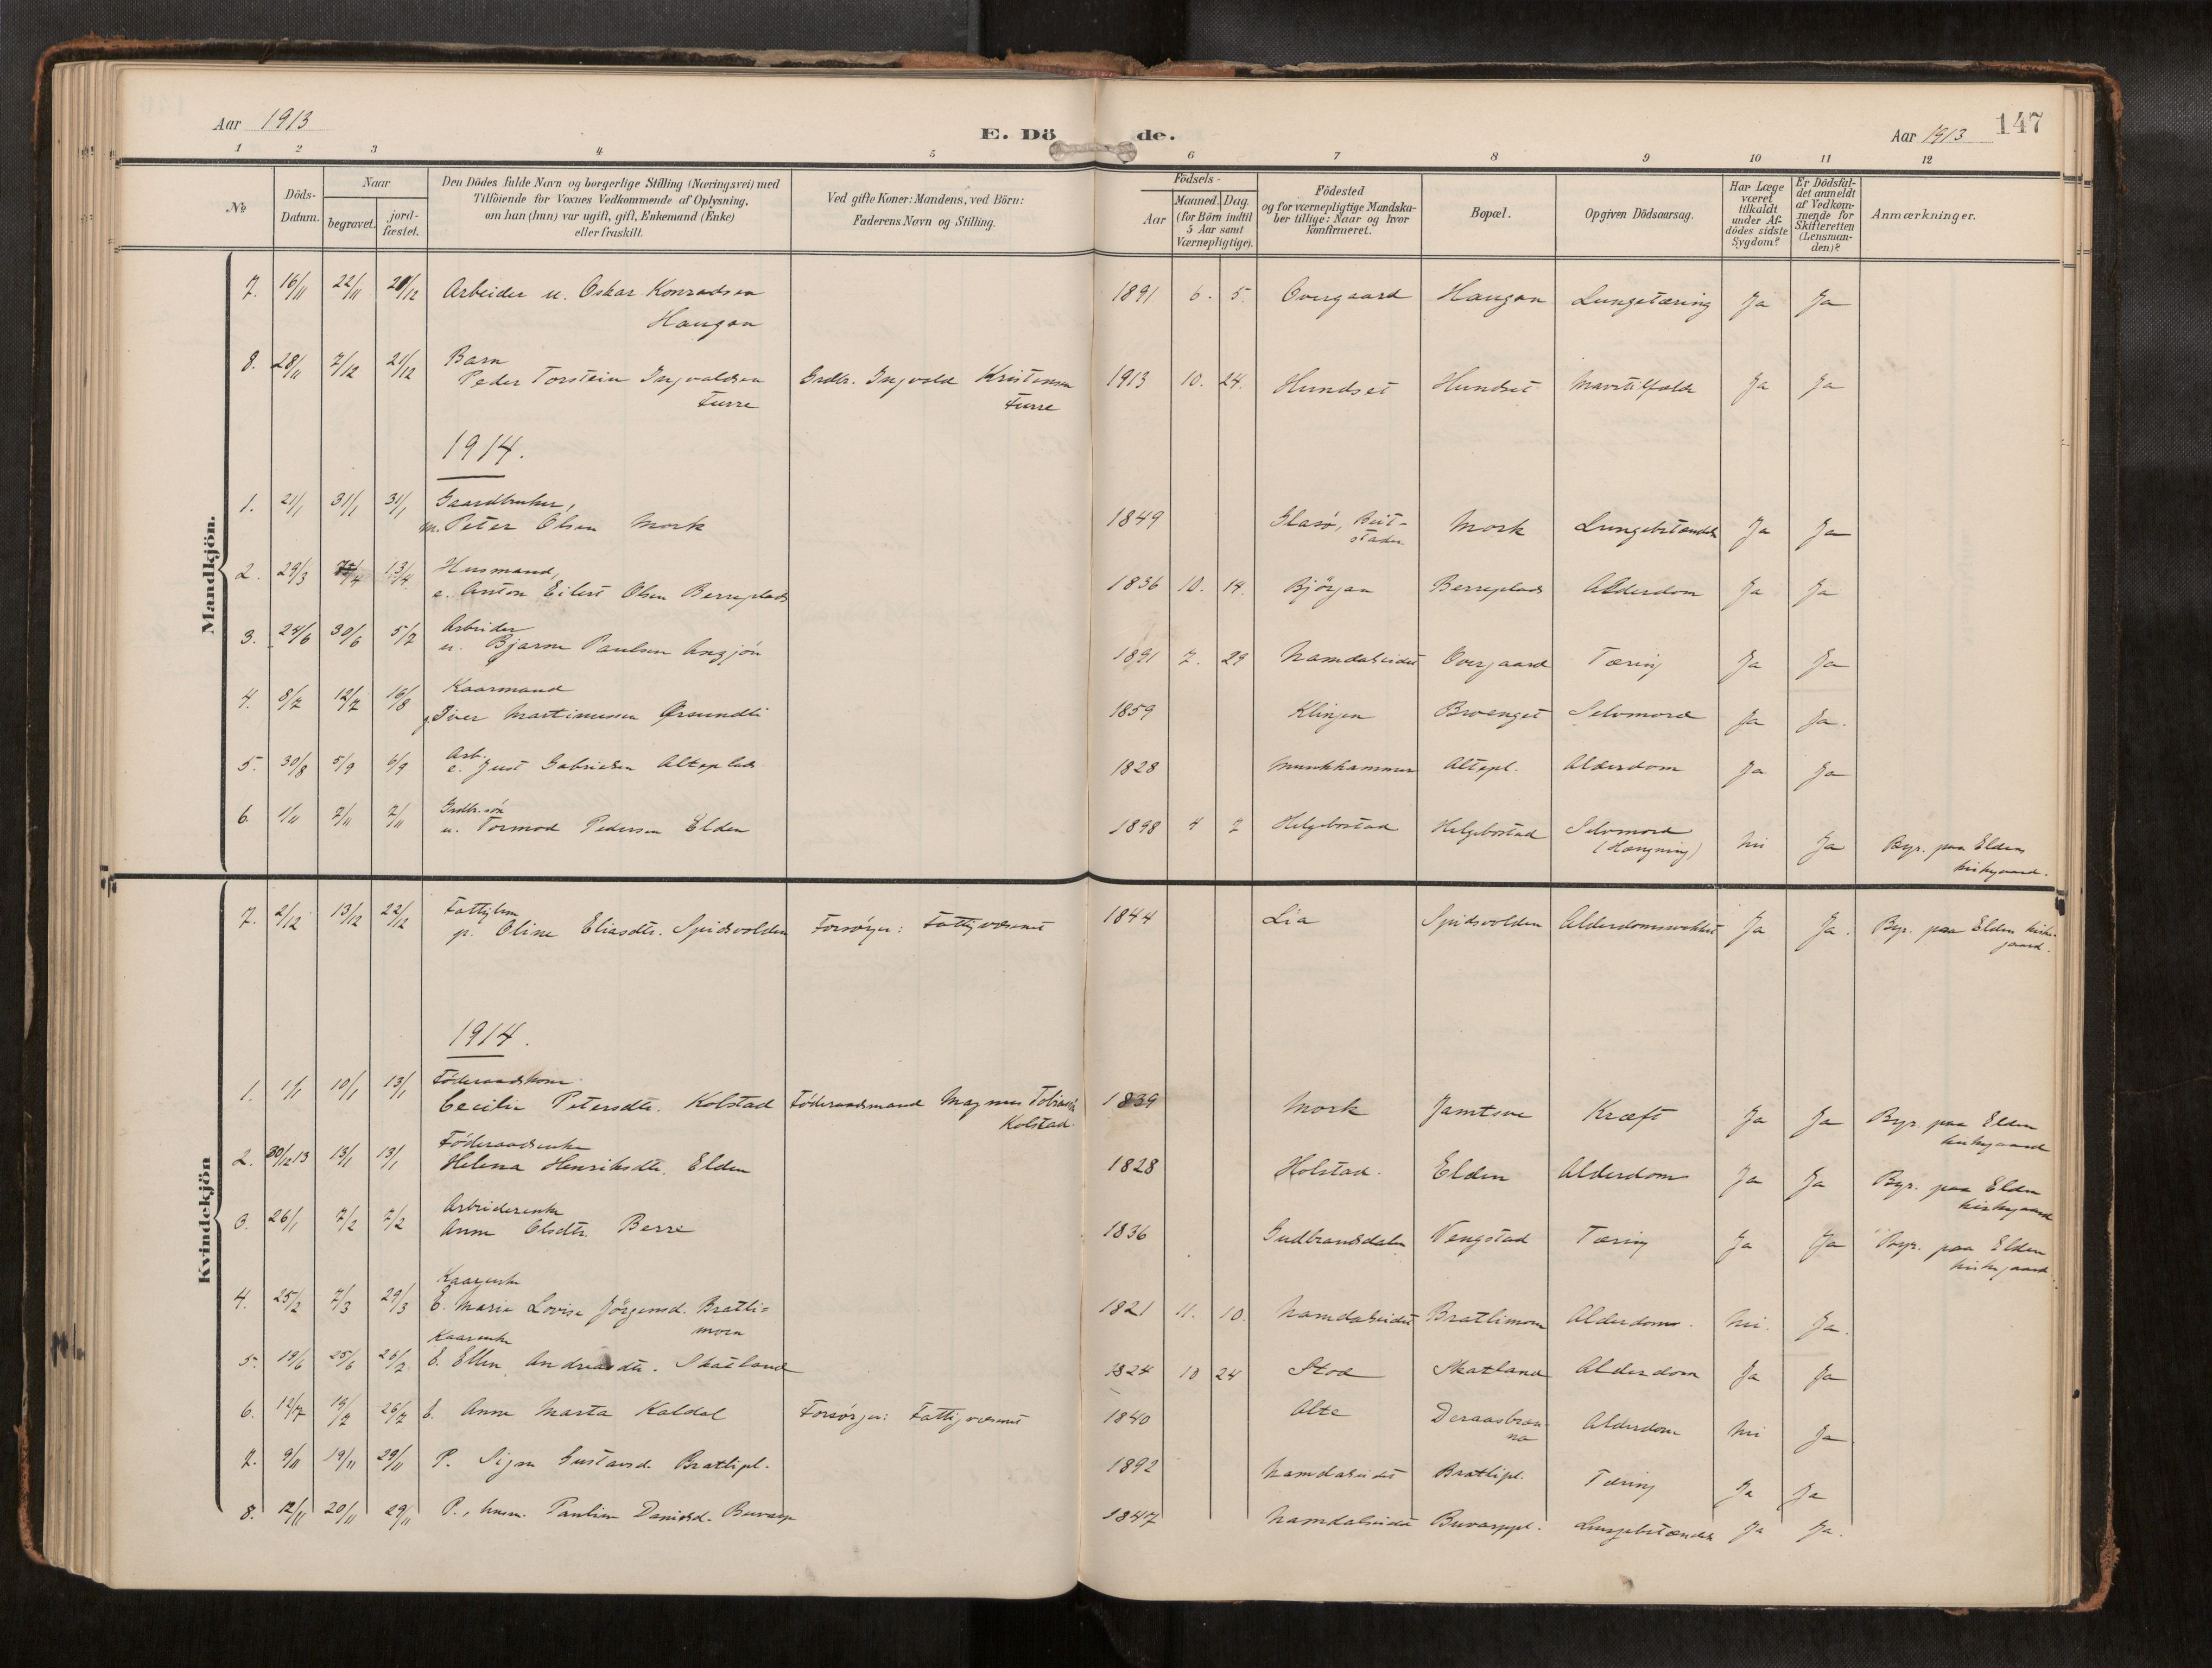 Aar 1913
E. Döde.
Aar 1913
147
1 2 3 4 5 6 7 8 9 10 11 12
No
Döds-Datum.
Naar
begravet.
jord-fæstet.
Den Dödes fulde Navn og borgerlige Stilling (Næringsvei) med
Tilföiende for Voxnes Vedkommende af Oplysning,
om han (hun) var ugift, gift, Enkemand (Enke)
eller fraskilt.
Ved gifte Koner: Mandens, ved Börn:
Faderens Navn og Stilling.
Födsels-
Aar
Maaned. Dag.
(for Börn indtil
5 Aar samt
Værnepligtige).
Födested
og for værnepligtige Mandska-
ber tillige: Naar og hvor
konfirmeret.
Bopæl.
Opgiven Dödsaarsag.
Har Læge
været
tilkaldt
under Af-
dödes sidste
Sygdom?
Er Dödsfal-
det anmeldt
af Vedkom-
mende for
Skifteretten
(Lensman-
den)?
Anmærkninger.
Mandkjön.
7. 16/11 22/11 21/12 Arbeider u. Oskar Konradsen 1891 6. 5. Overgaard Haugan Lungetæring Ja Ja
Haugan
8. 28/11 7/12 21/12 Barn
Peder Torstein Ingvaldsen Grdbr. Ingvald Kristensen 1913 10. 24. Hundset Hundset Ja Ja
Furre Furre
1914.
1. 21/1 31/1 31/1 Gaardbruker,
m. Peter Olsen Mork 1849 Glasø, Beit- Mork Lungebetændelse Ja Ja
staden
2. 29/3 13/4 Husmand,
e. Anton Eilert Olsen Berreplads 1836 10. 14. Bjørgan Berreplads Alderdom Ja Ja
3. 24/6 30/6 5/7 Arbeider
u. Bjarne Paulsen 1891 7. 29 Namdalseidet Overgaard Tæring Ja Ja
4. 8/7 12/7 16/8 Kaarmand
g. Iver Martinussen Ørsundli 1859 Klingen Brænget Selvmord Ja Ja.
5. 30/8 5/9 6/9 Arb.
e. Just Gabrielsen Alteplads 1828 Munkhammer Altepl. Alderdom Ja Ja
6. 1/11 7/11 7/11 Grdbr. søn
u. Tormod Pedersen Elden 1898 4 7 Helgebostad Helgebostad Selvmord Nei Ja Begr. paa Elden
(Hængning) kirkegaard.
Kvindekjön
7. 2/12 13/12 22/12 Fattiglem
p. Oline Eliasdtr. Spidsvolden Forsørger: Fattigvæsenet 1844 Lia Spidsvolden Alderdomssvækkelse Ja Ja. Begr. paa Elden kirke-
gaard.
1914.
1. 1/1 10/1 13/1 Føderaadskone
Cecilie Petersdtr. Kolstad Føderaadsmand Magnus Tobiassen 1839 Mork Jamtsve Kræft Ja Ja Begr. paa Elden
Kolstad. kirkegaard
2. 30/12 13 13/1 13/1 Føderaadsenke
Helena Henriksdtr. Elden 1828 Holstad. Elden Alderdom Ja Ja Begr. paa Elden
kirkegaard
3. 26/1 7/2 7/2 Arbeiderenke
Anne Olsdtr. Berre 1836 Gudbrandsdalen Vengstad Tæring Ja Ja Begr. paa Elden
kirkegaard
4. 25/2 7/3 29/3 Kaarenke
E. Marie Lovise Jørgensd. Bratli- 1821 11. 10. Namdalseidet Bratlimoen Alderdom. Nei. Ja.
moen
5. 19/6 25/6 26/7 Kaarenke
E. Ellen Andreasdtr. Skatland 1824 10 24 Stod Skatland Alderdom Ja Ja
6. 12/7 19/7 26/7 E. Anne Marta Kaldal Forsørger: Fattigvæsenet 1840 Alte Deraasbræn- Alderdom Nei Ja
na
7. 9/11 19/11 29/11 P. Signe Gustavsd. Bratlipl. 1892 Namdalseidet Bratlipl. Tæring Ja Ja
8. 12/11 20/11 29/11 P., husm. Pauline Danielsd. Buvarp 1847 Namdalseidet Buvarppl. Lungebetændelse Ja Ja.